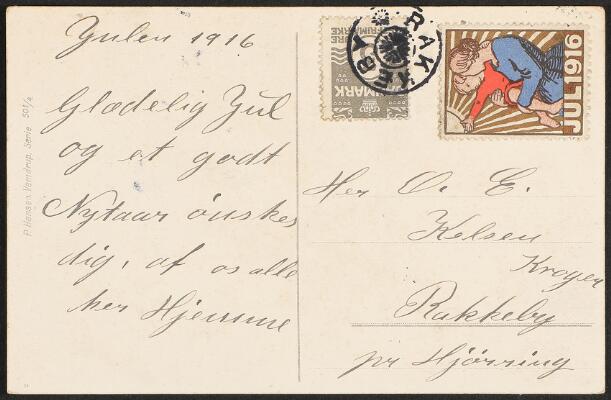 Julen 1916
Glædelig Jul
og et godt
Nytaar ønskes
dig, af os alle
her Hjemme
P. Hansen, Vamdrup. Serie 501/4
RAKKEBY
DANMARK
JUL 1916
Her O. E.
Kelsen
Krogen
Rakkeby
pr Hjørring